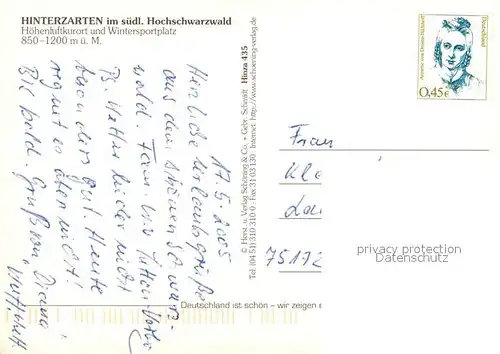 HINTERZARTEN im südl. Hochschwarzwald
Höhenluftkurort und Wintersportplatz
850–1200 m ü. M.
17.5.2005
Herzliche Urlaubsgrüße
aus dem schönen Schwarz-
wald. Fam. wir hatten
PS. Wetter leider nicht
besonders gut. Heute
regnet es aber nicht!
Bis bald. Gruß von Diana
© Herst. u. Verlag Schöning & Co. + Gebr. Schmidt Hinza 435
Tel. (04 51) 310 310-0 · Fax 31 03 130 Internet: http://www.schoening-verlag.de
Deutschland ist schön – wir zeigen e
Annette von Droste-Hülshoff
Deutschland
0,45€
Frau
Kle
Lan
75172
privacy protection
Datenschutz